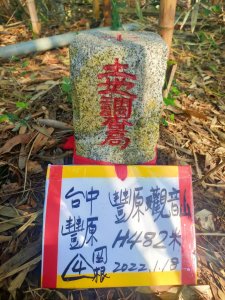 土地調查局
台中 豐原觀音山
豐原 H482米
④圖根 2022.1.18